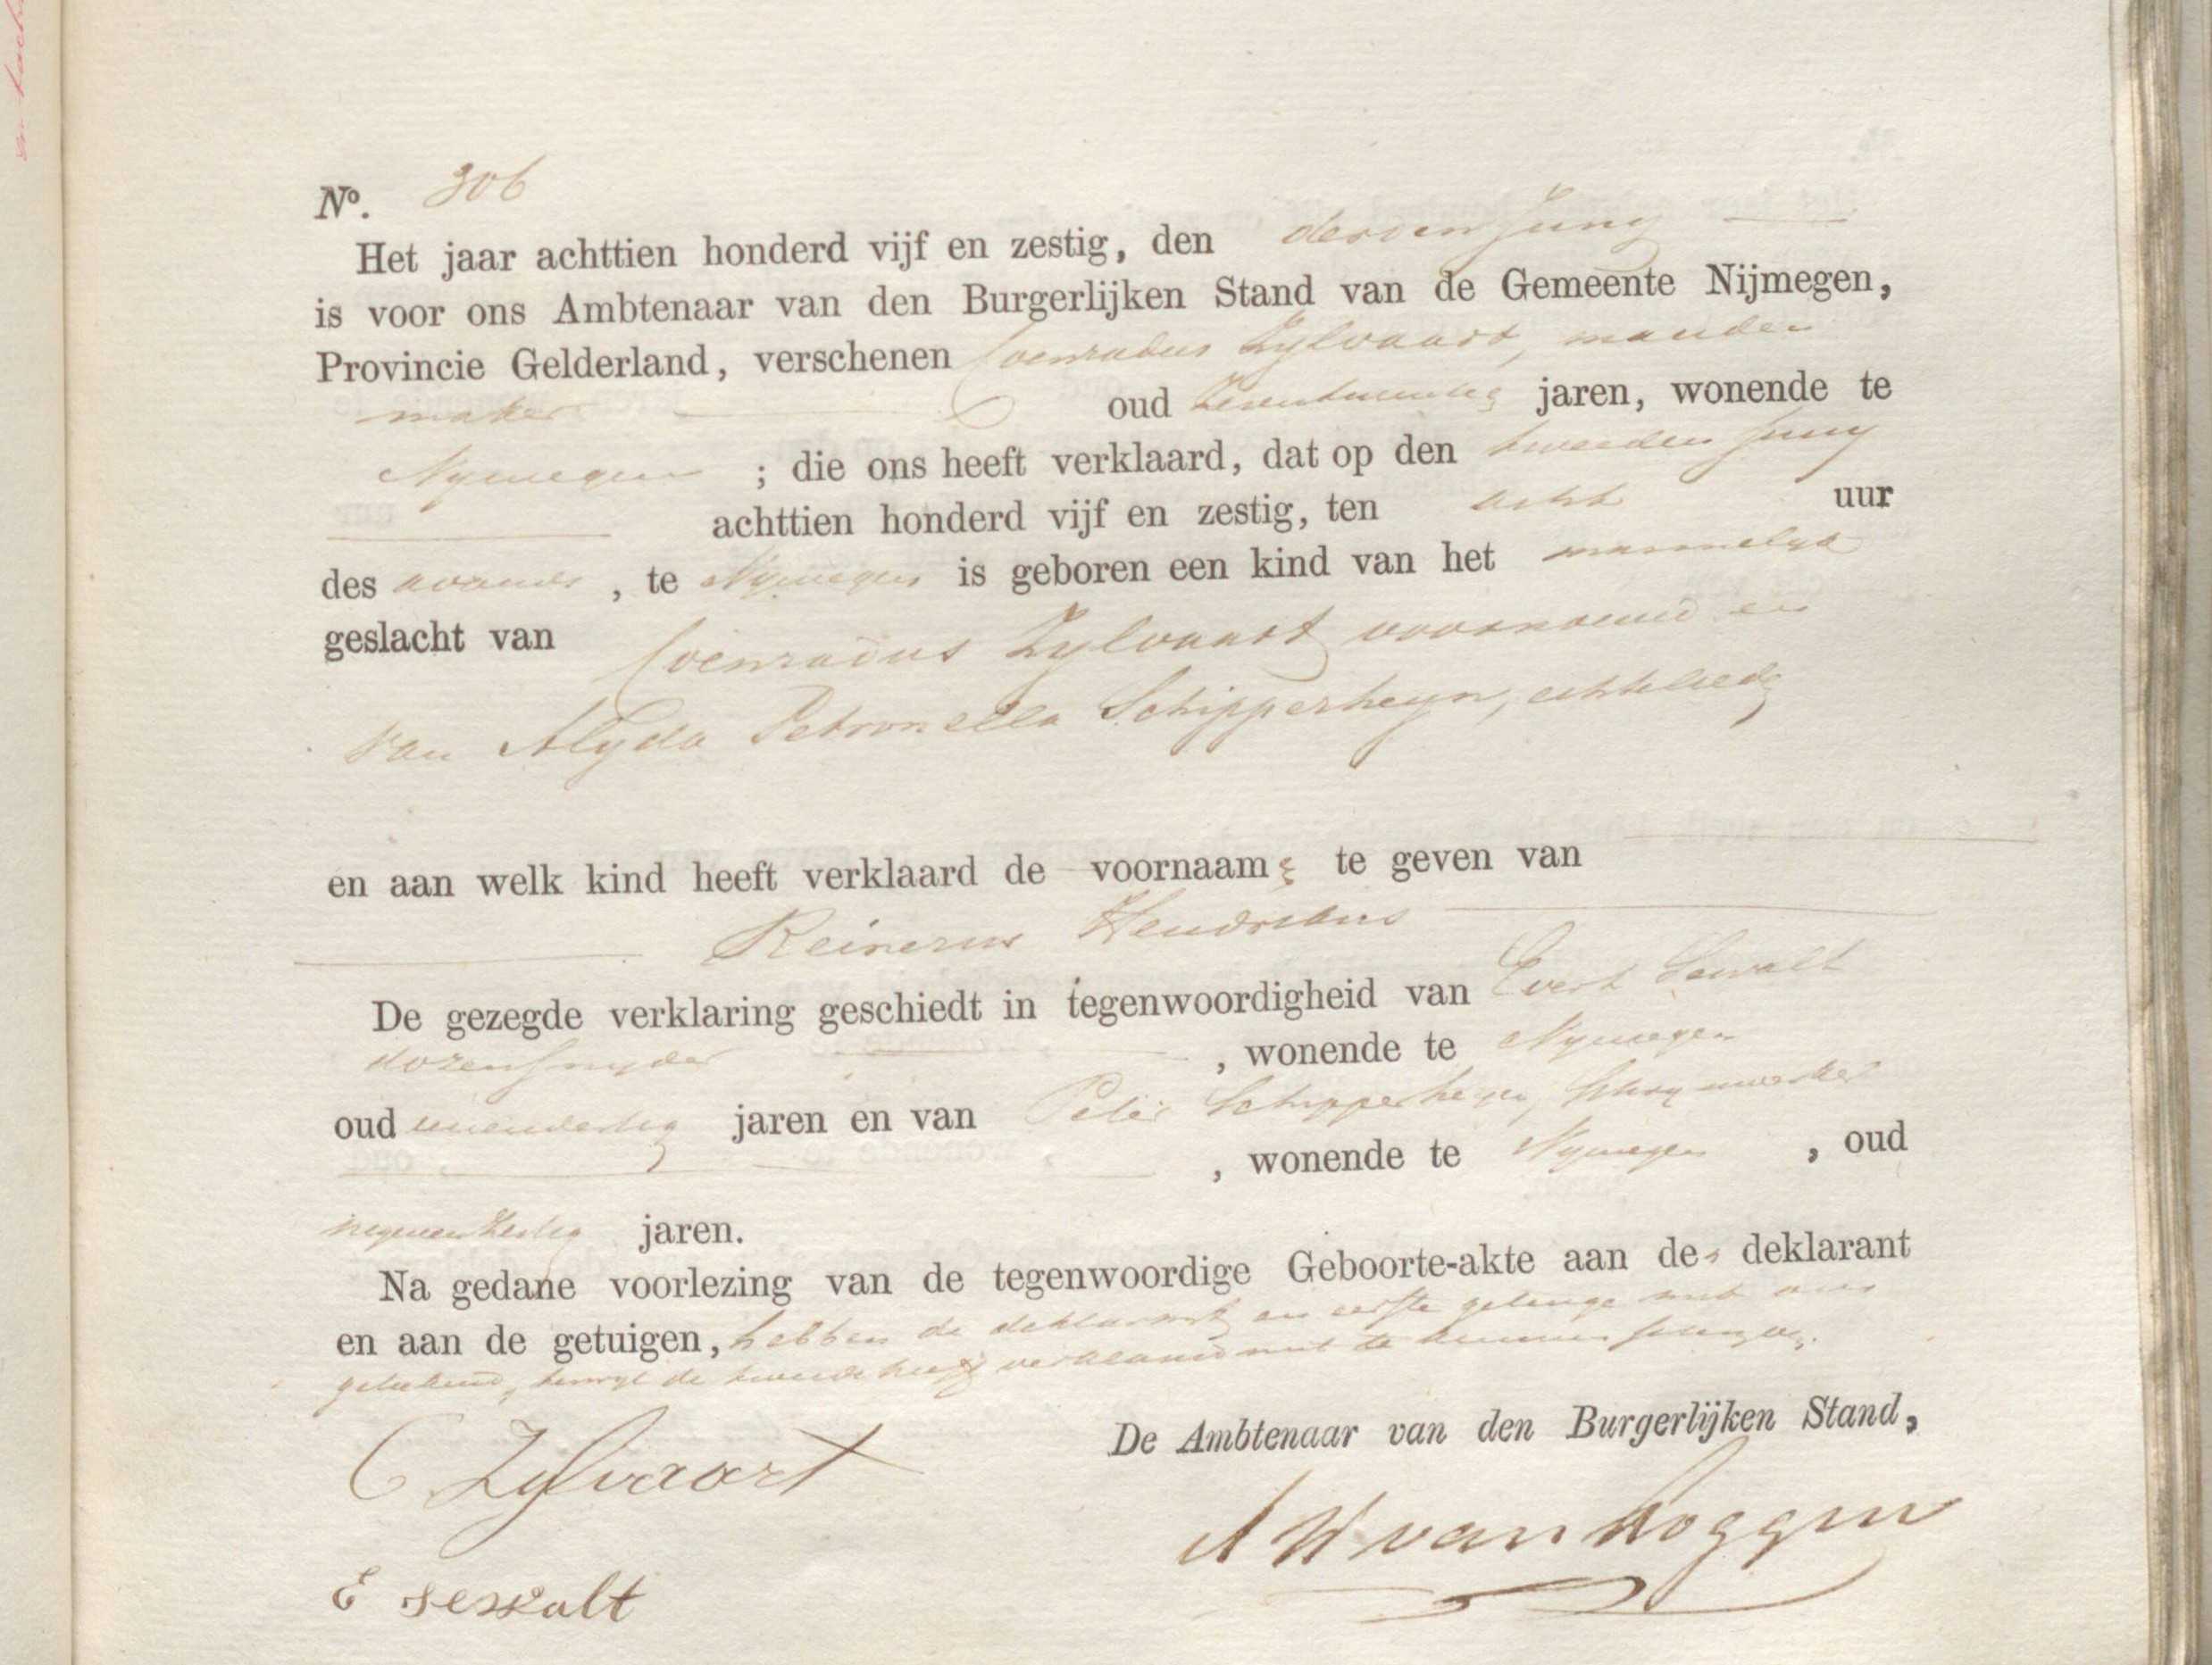 No. 306
Het jaar achttien honderd vijf en zestig, den derden Juny
is voor ons Ambtenaar van den Burgerlijken Stand van de Gemeente Nijmegen,
Provincie Gelderland, verschenen Coenradus Zylvaart, manden
maker oud zevenentwintig jaren, wonende te
Nymegen ; die ons heeft verklaard, dat op den tweeden Juny
achttien honderd vijf en zestig, ten acht uur
des avonds, te Nymegen is geboren een kind van het mannelyk
geslacht van Coenradus Zylvaart voornoemd en
van Alyda Petronella Schipperheyn, echtelieden
en aan welk kind heeft verklaard de voornaams te geven van
Reinerus Hendrikus
De gezegde verklaring geschiedt in tegenwoordigheid van Evert Sewalt
dozensnyder, wonende te Nymegen
oud eenendertig jaren en van Peter Schipperheyn, schrynwerker
, wonende te Nymegen, oud
negenenzestig jaren.
Na gedane voorlezing van de tegenwoordige Geboorte-akte aan den deklarant
en aan de getuigen, hebben de deklarant en eerste getuige met ons
geteekend, terwyl de tweede heeft verklaard niet te kunnen schryven.
De Ambtenaar van den Burgerlijken Stand,
C Zylvaart
A W van Roggen
E sewalt